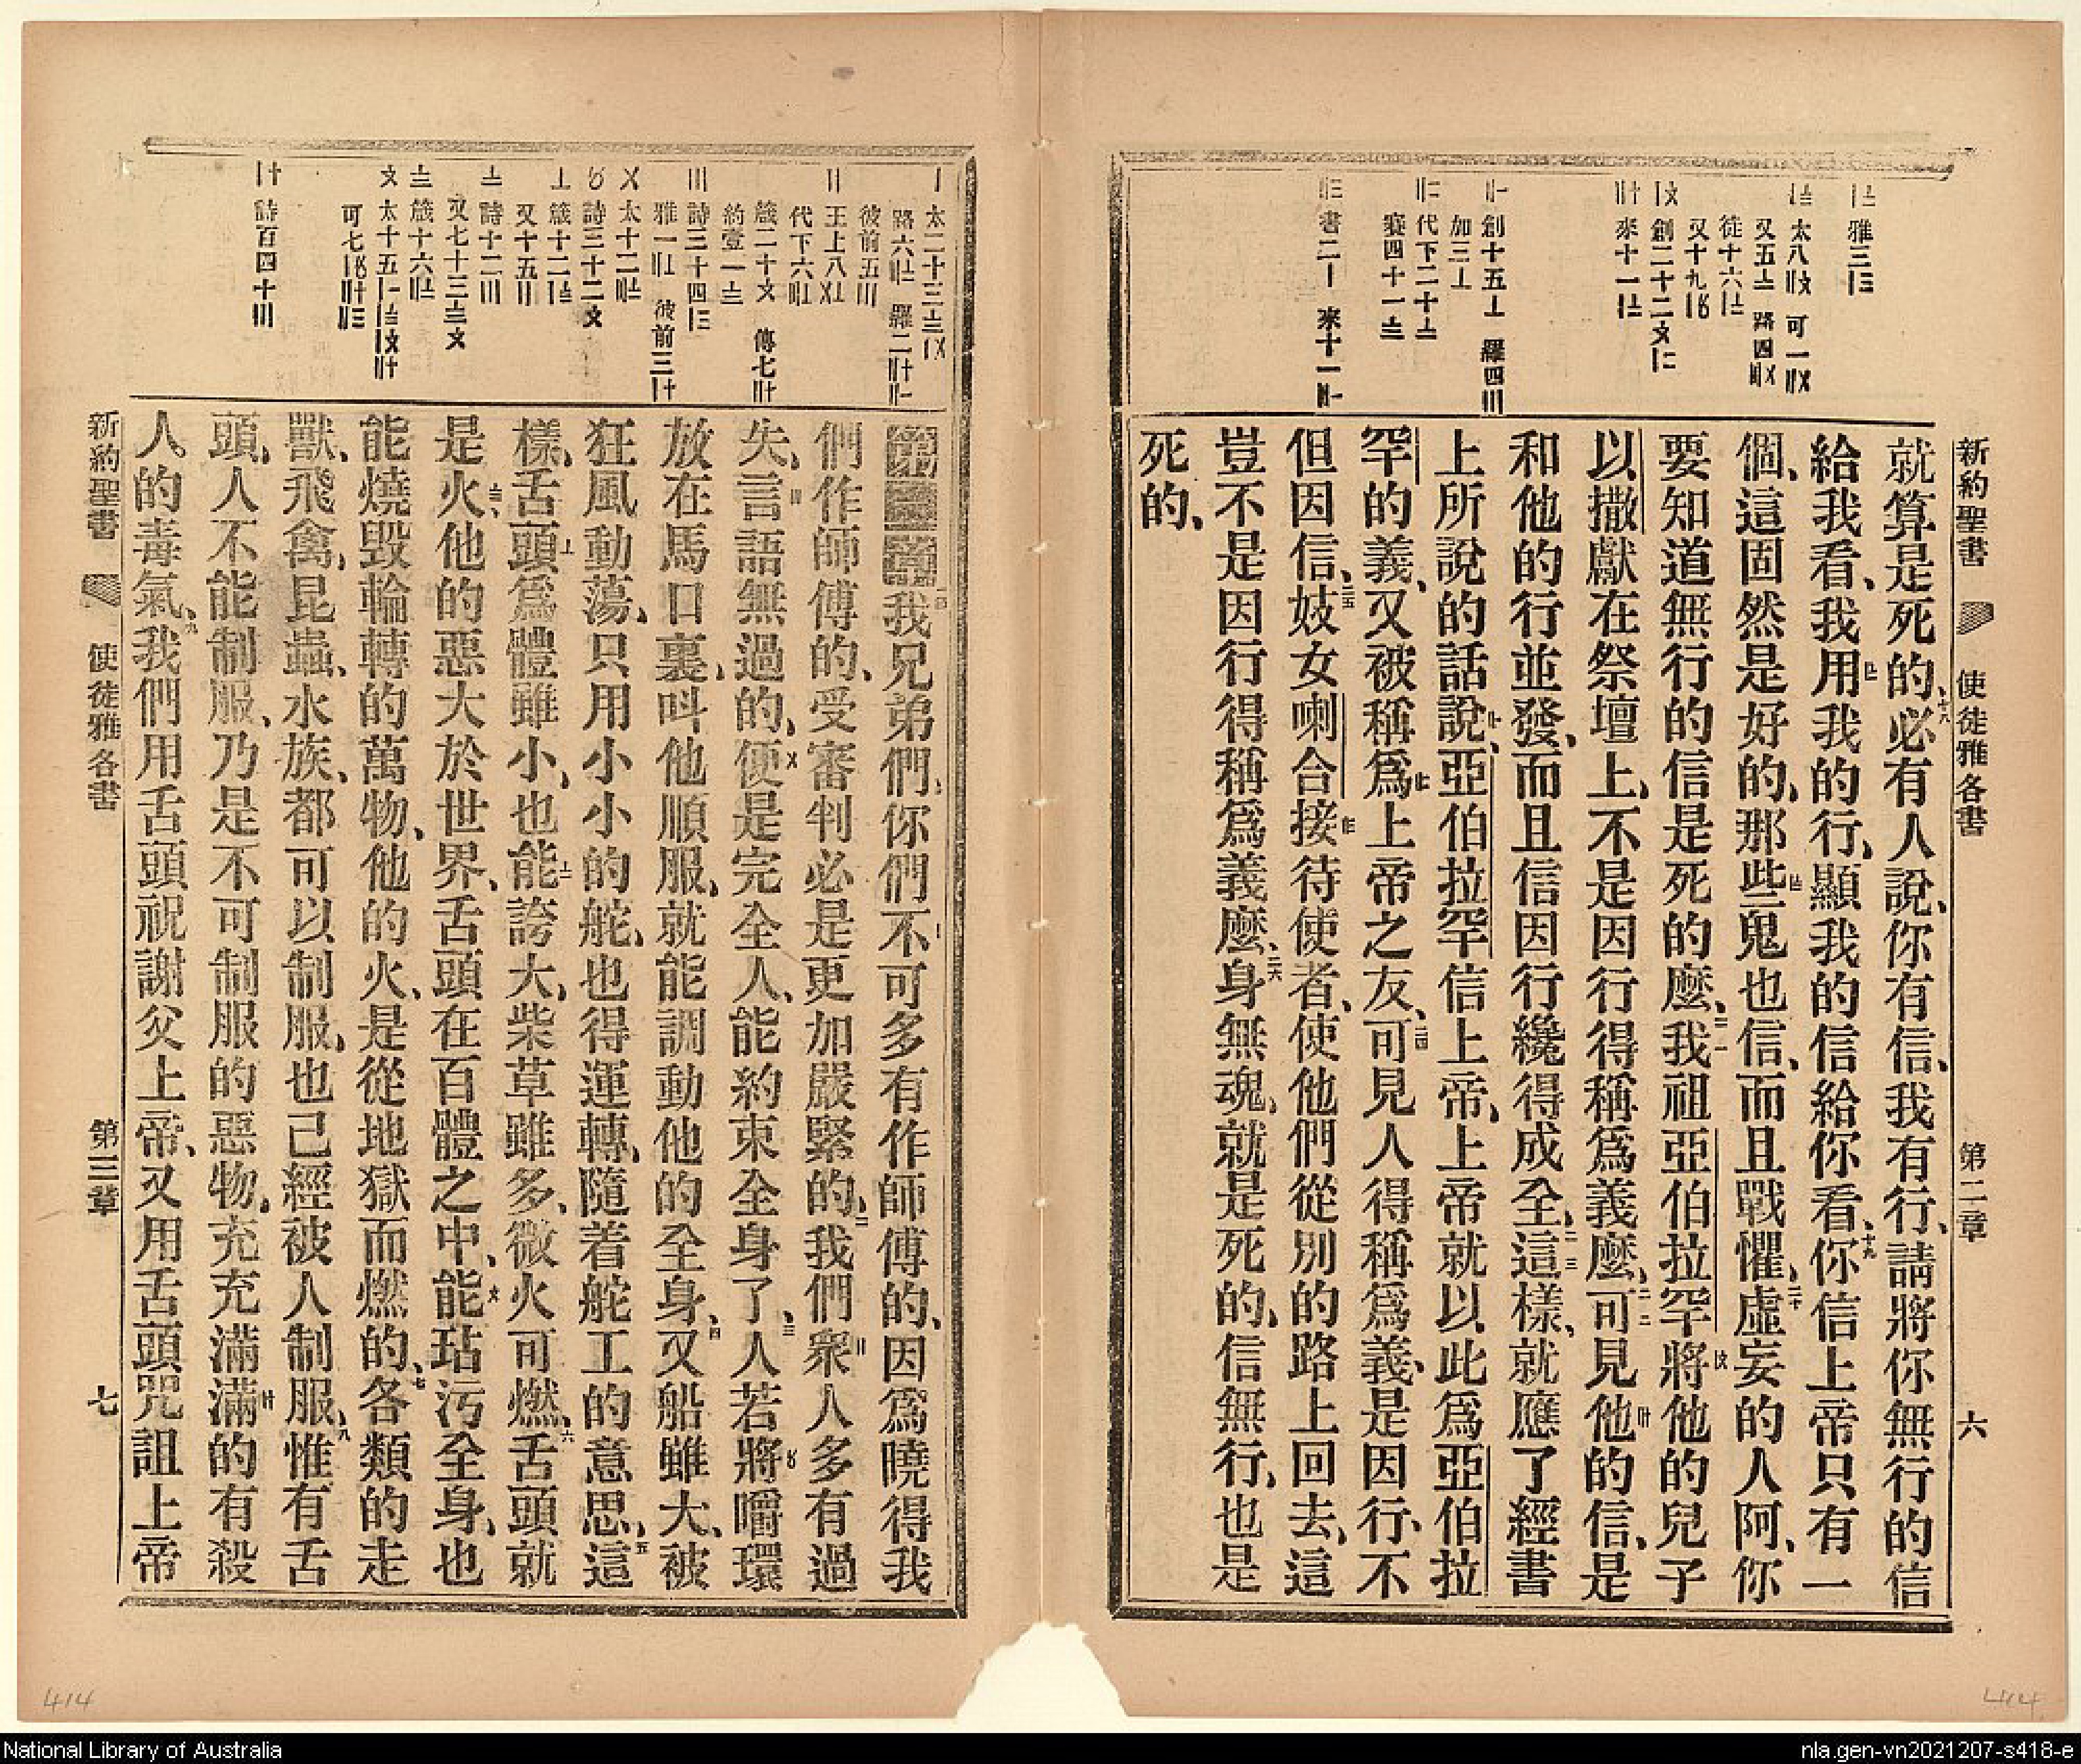 新約聖書 使徒雅各書 第二章 六
雅三
就算是死的、十八必有人說、你有信、我有行、請將你無行的信
給我看、我用我的行、顯我的信給你看、十九你信上帝只有一
個、這固然是好的、那些鬼也信、而且戰懼、二十虛妄的人阿、你
要知道無行的信是死的麼、二一我祖亞伯拉罕將他的兒子
以撒獻在祭壇上、不是因行得稱爲義麼、二二可見他的信、是
和他的行並發、而且信因行纔得成全、二三這樣、就應了經書
上所說的話說、亞伯拉罕信上帝、上帝就以此爲亞伯拉
罕的義、又被稱爲上帝之友、二四可見人得稱爲義、是因行、不
但因信、二五妓女喇合接待使者、使他們從別的路上回去、這
豈不是因行得稱爲義麼、二六身無魂、就是死的、信無行、也是
死的、
第三章一我兄弟們、你們不可多有作師傅的、因爲曉得我
們作師傅的、受審判必是更加嚴緊的、二我們衆人多有過
失、言語無過的、便是完全人、能約束全身了、三人若將嚼環
放在馬口裏、呌他順服、就能調動他的全身、四又船雖大、被
狂風動蕩、只用小小的舵、也得運轉、隨着舵工的意思、五這
樣、舌頭爲體雖小、也能誇大、柴草雖多、微火可燃、六舌頭就
是火、他的惡大於世界、舌頭在百體之中、能玷污全身、也
能燒毀輪轉的萬物、他的火、是從地獄而燃的、七各類的走
獸、飛禽、昆蟲、水族、都可以制服、也已經被人制服、八惟有舌
頭、人不能制服、乃是不可制服的惡物、充充滿滿的有殺
人的毒氣、九我們用舌頭祝謝父上帝、又用舌頭咒詛上帝
新約聖書 使徒雅各書 第三章 七
414
414
National Library of Australia
nla.gen-vn2021207-s418-e